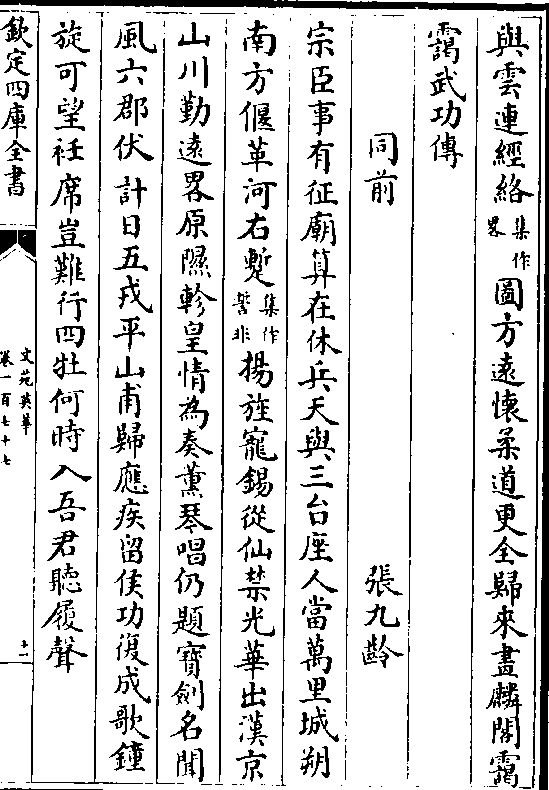 與雲連經絡集作畧圖方遠懷柔道更全歸來畫麟閣靄
靄武功傳
同前 張九齡
宗臣事有征廟算在休兵天與三台座人當萬里城朔
南方偃革河右蹔集作誓非揚旌寵錫從仙禁光華出漢京
山川勤遠畧原隰軫皇情為奏薰琴唱仍題寶劍名聞
風六郡伏計日五戎平山甫歸應疾留侯功復成歌鐘
旋可望衽席豈難行四牡何時入吾君聽履聲
欽定四庫全書
文苑英華
卷一百七十七
十一